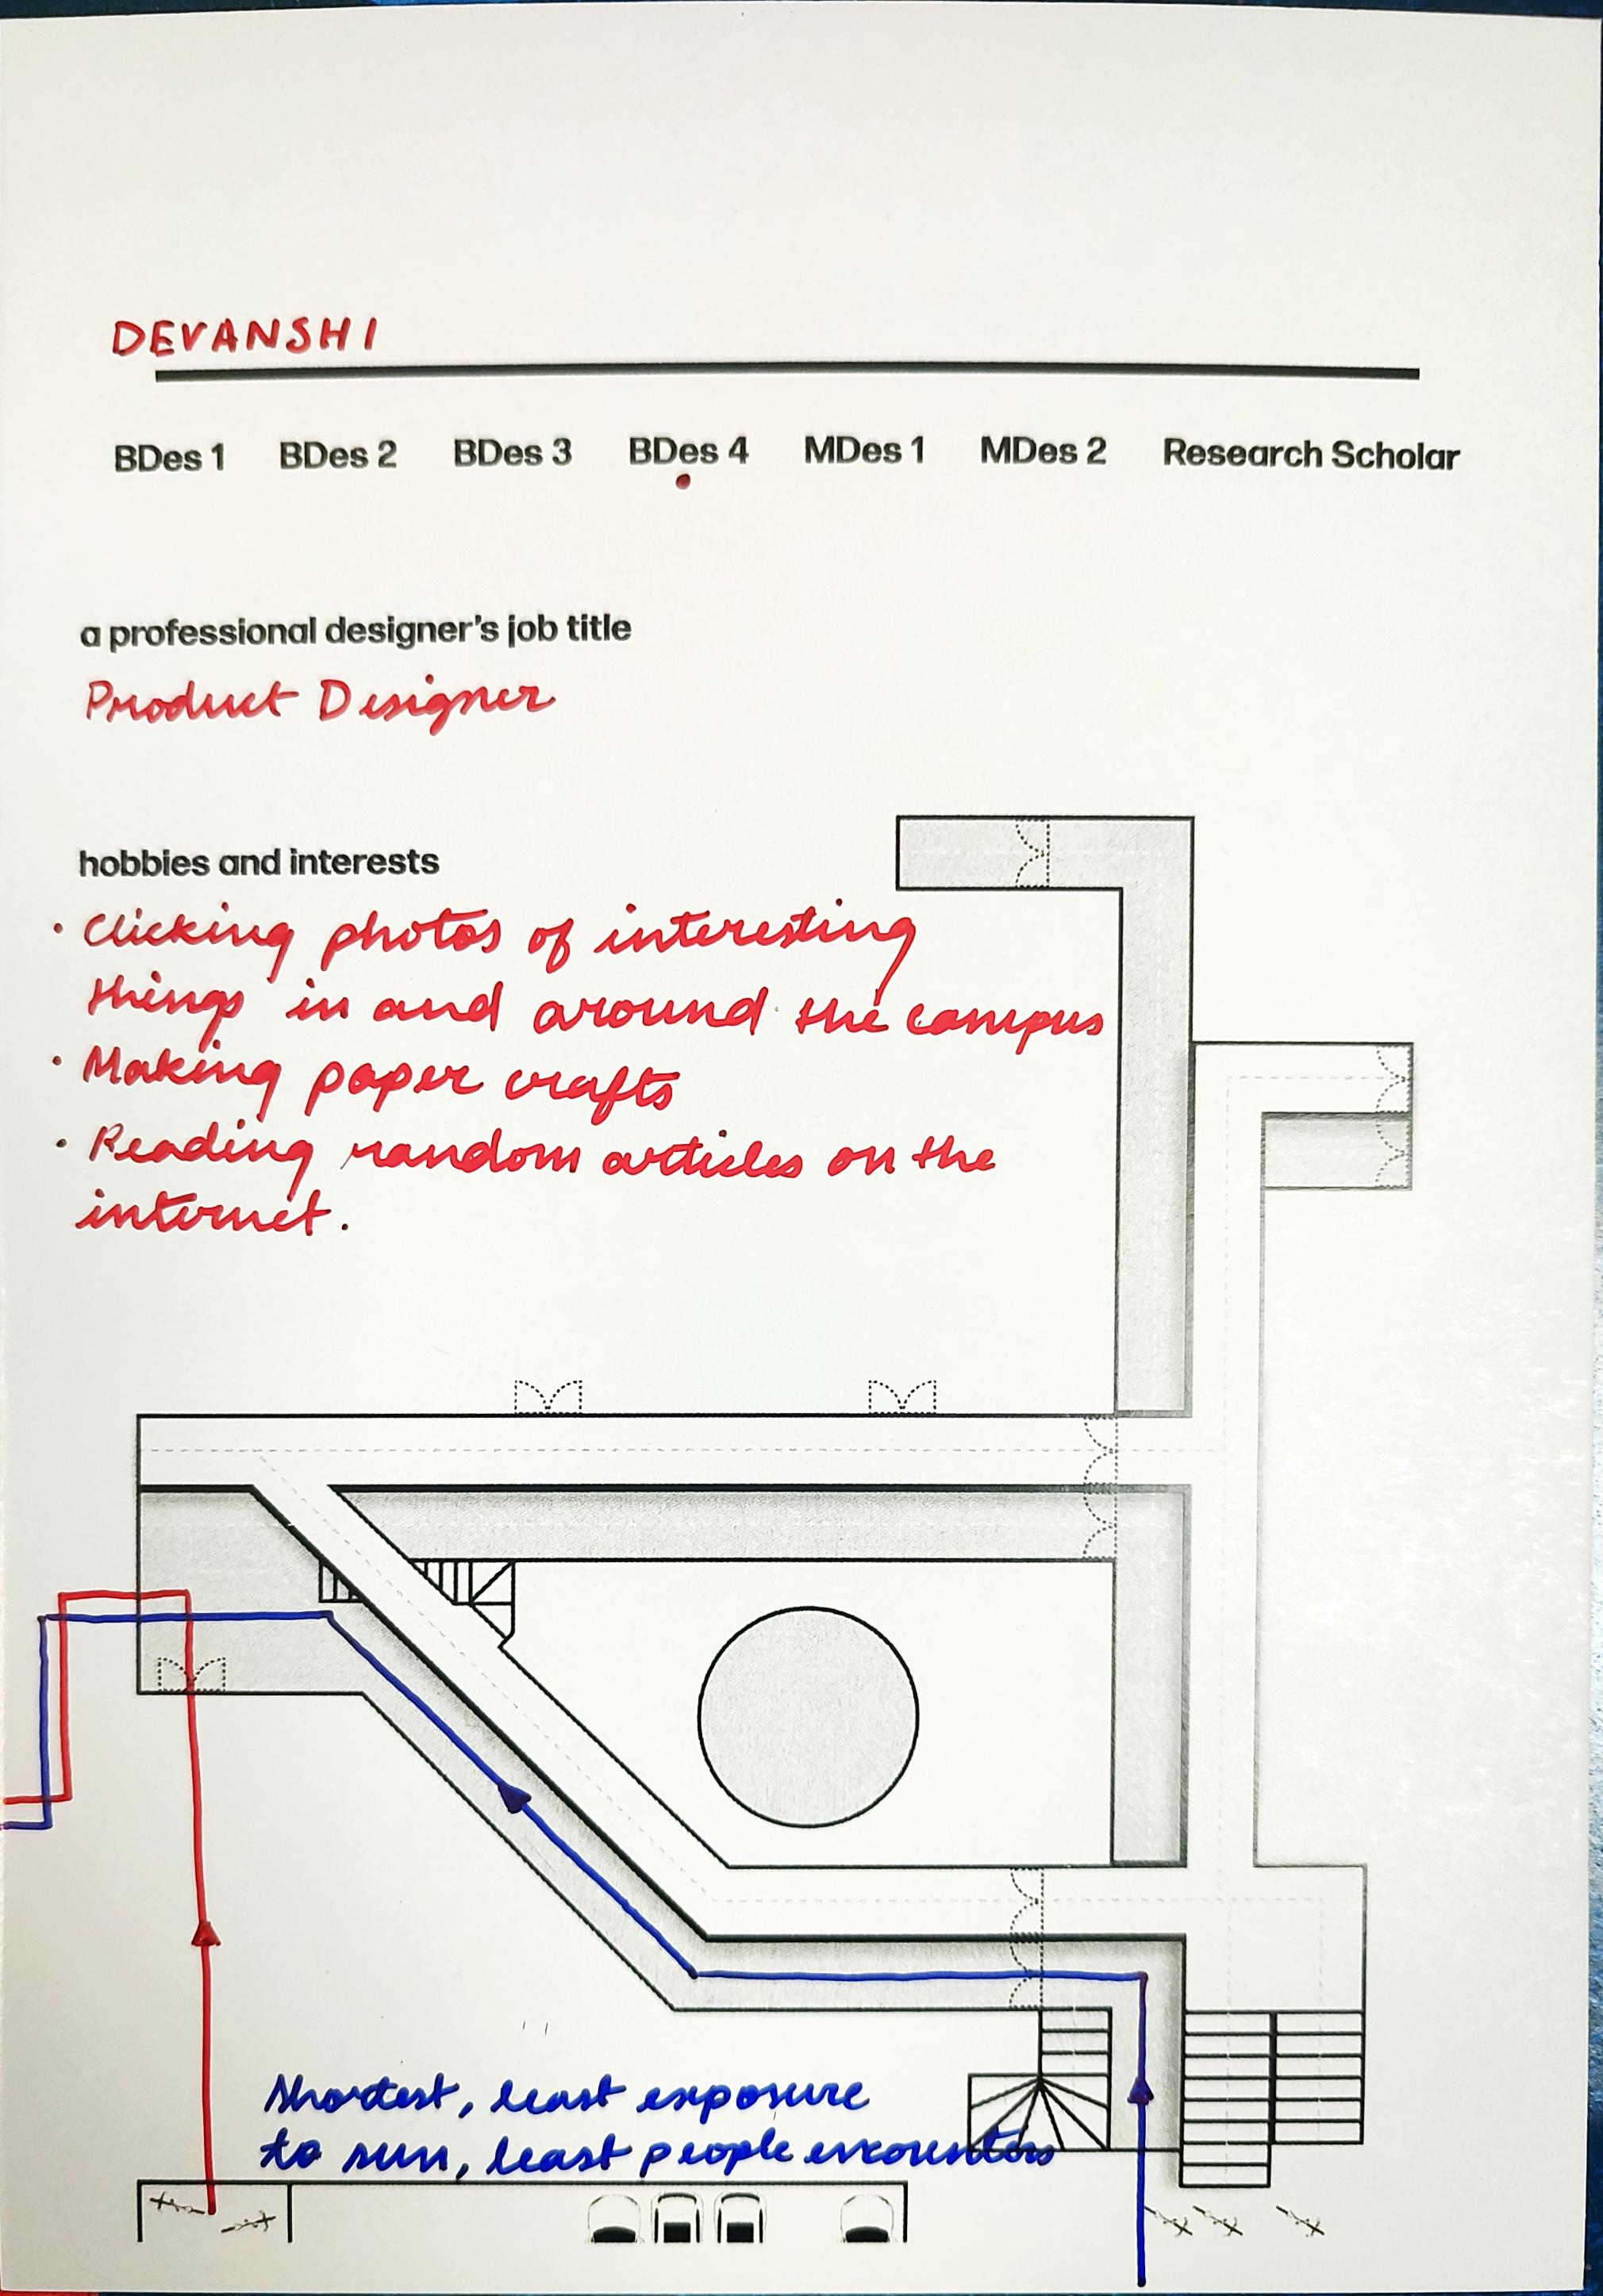 DEVANSHI
BDes 1 BDes 2 BDes 3 BDes 4 MDes 1 MDes 2 Research Scholar
a professional designer's job title
Product Designer
hobbies and interests
• Clicking photos of interesting
things in and around the campus
• Making paper crafts
• Reading random articles on the
internet.
Shortest, least exposure
to sun, least people encounters